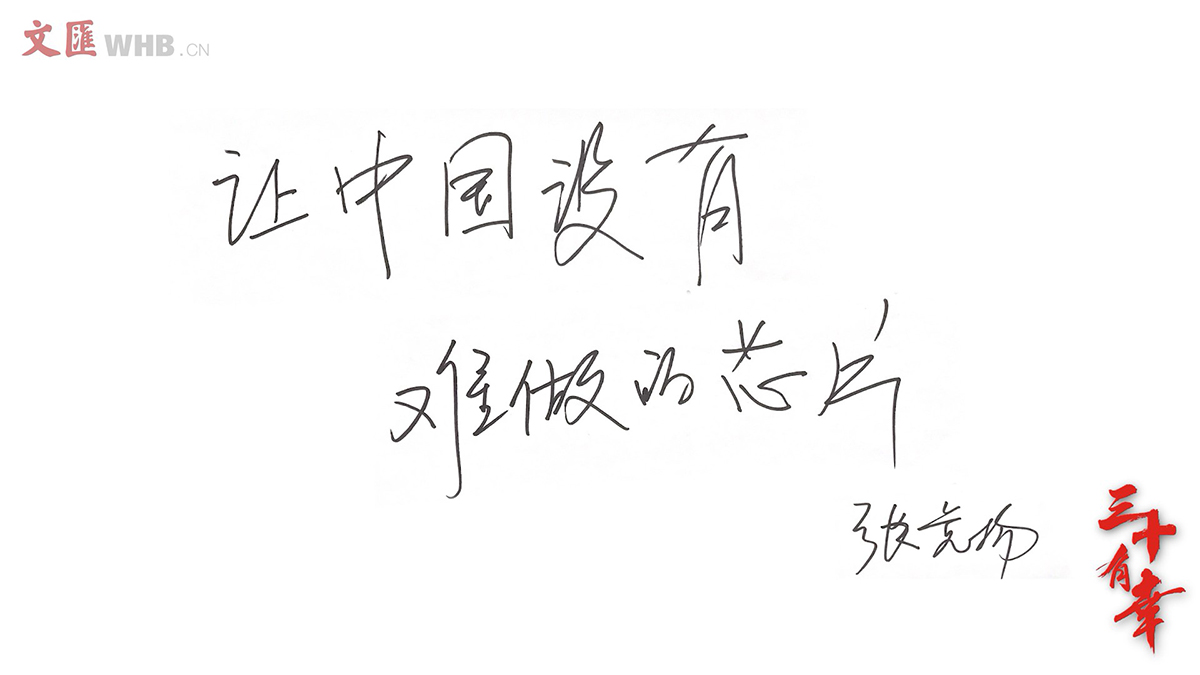 文匯WHB.CN
让中国没有
难做的芯片
张竞扬
三十有幸